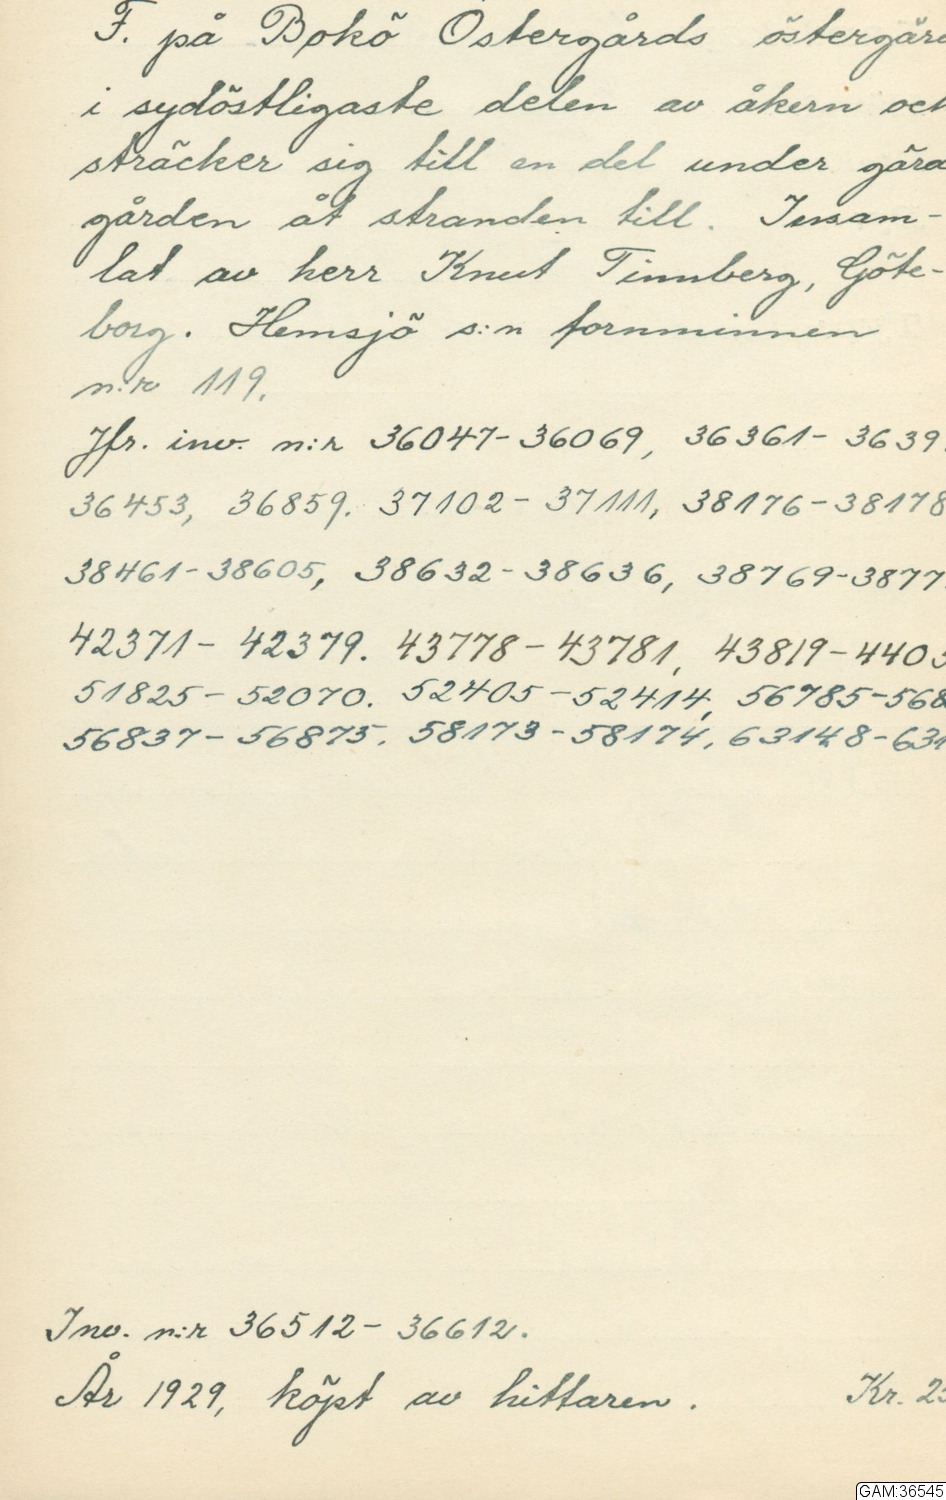 F. på Bokö Östergårds östergärd
i sydöstligaste delen av åkern och
sträcker sig till en del under gärd
gården åt stranden till. Insam-
lat av herr Knut Tinnberg, Göte-
borg. Hemsjö s:n fornminnen
n:r 119.
Jfr. inv. n:r 36047-36069, 36361- 3639
36453, 36859. 37102- 37111, 38176-38178
38461-38605, 38632-38636, 38769-3877
42371- 42379. 43778-43781, 43819-4405
51825- 52070. 52405-52414, 56785-568
56837- 56875. 58173-58174, 63148-631
Inv. n:r 36512- 36612.
År 1929, köpt av hittaren. Kr. 25
GAM:36545